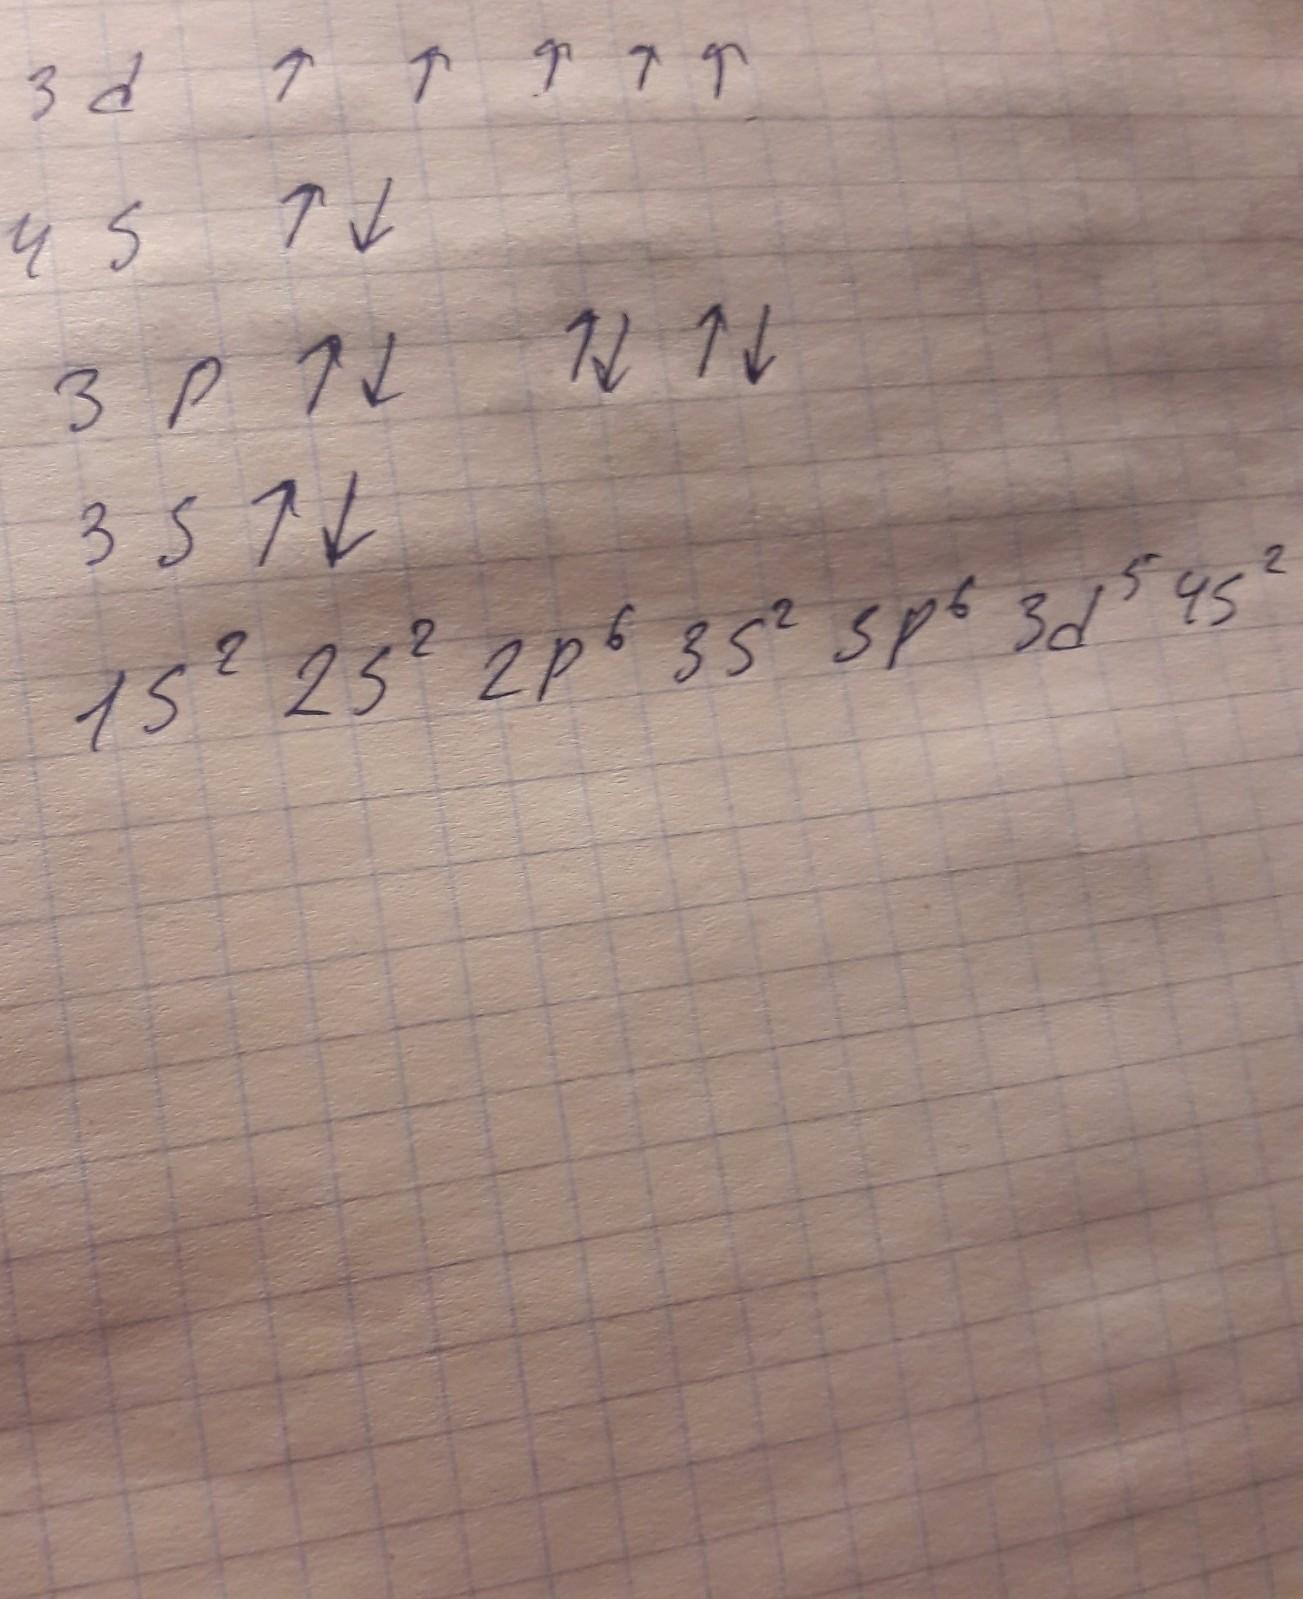 3d ↑ ↑ ↑ ↑ ↑
4s ↑↓
3p ↑↓ ↑↓ ↑↓
3s ↑↓
1s² 2s² 2p⁶ 3s² 3p⁶ 3d⁵ 4s²